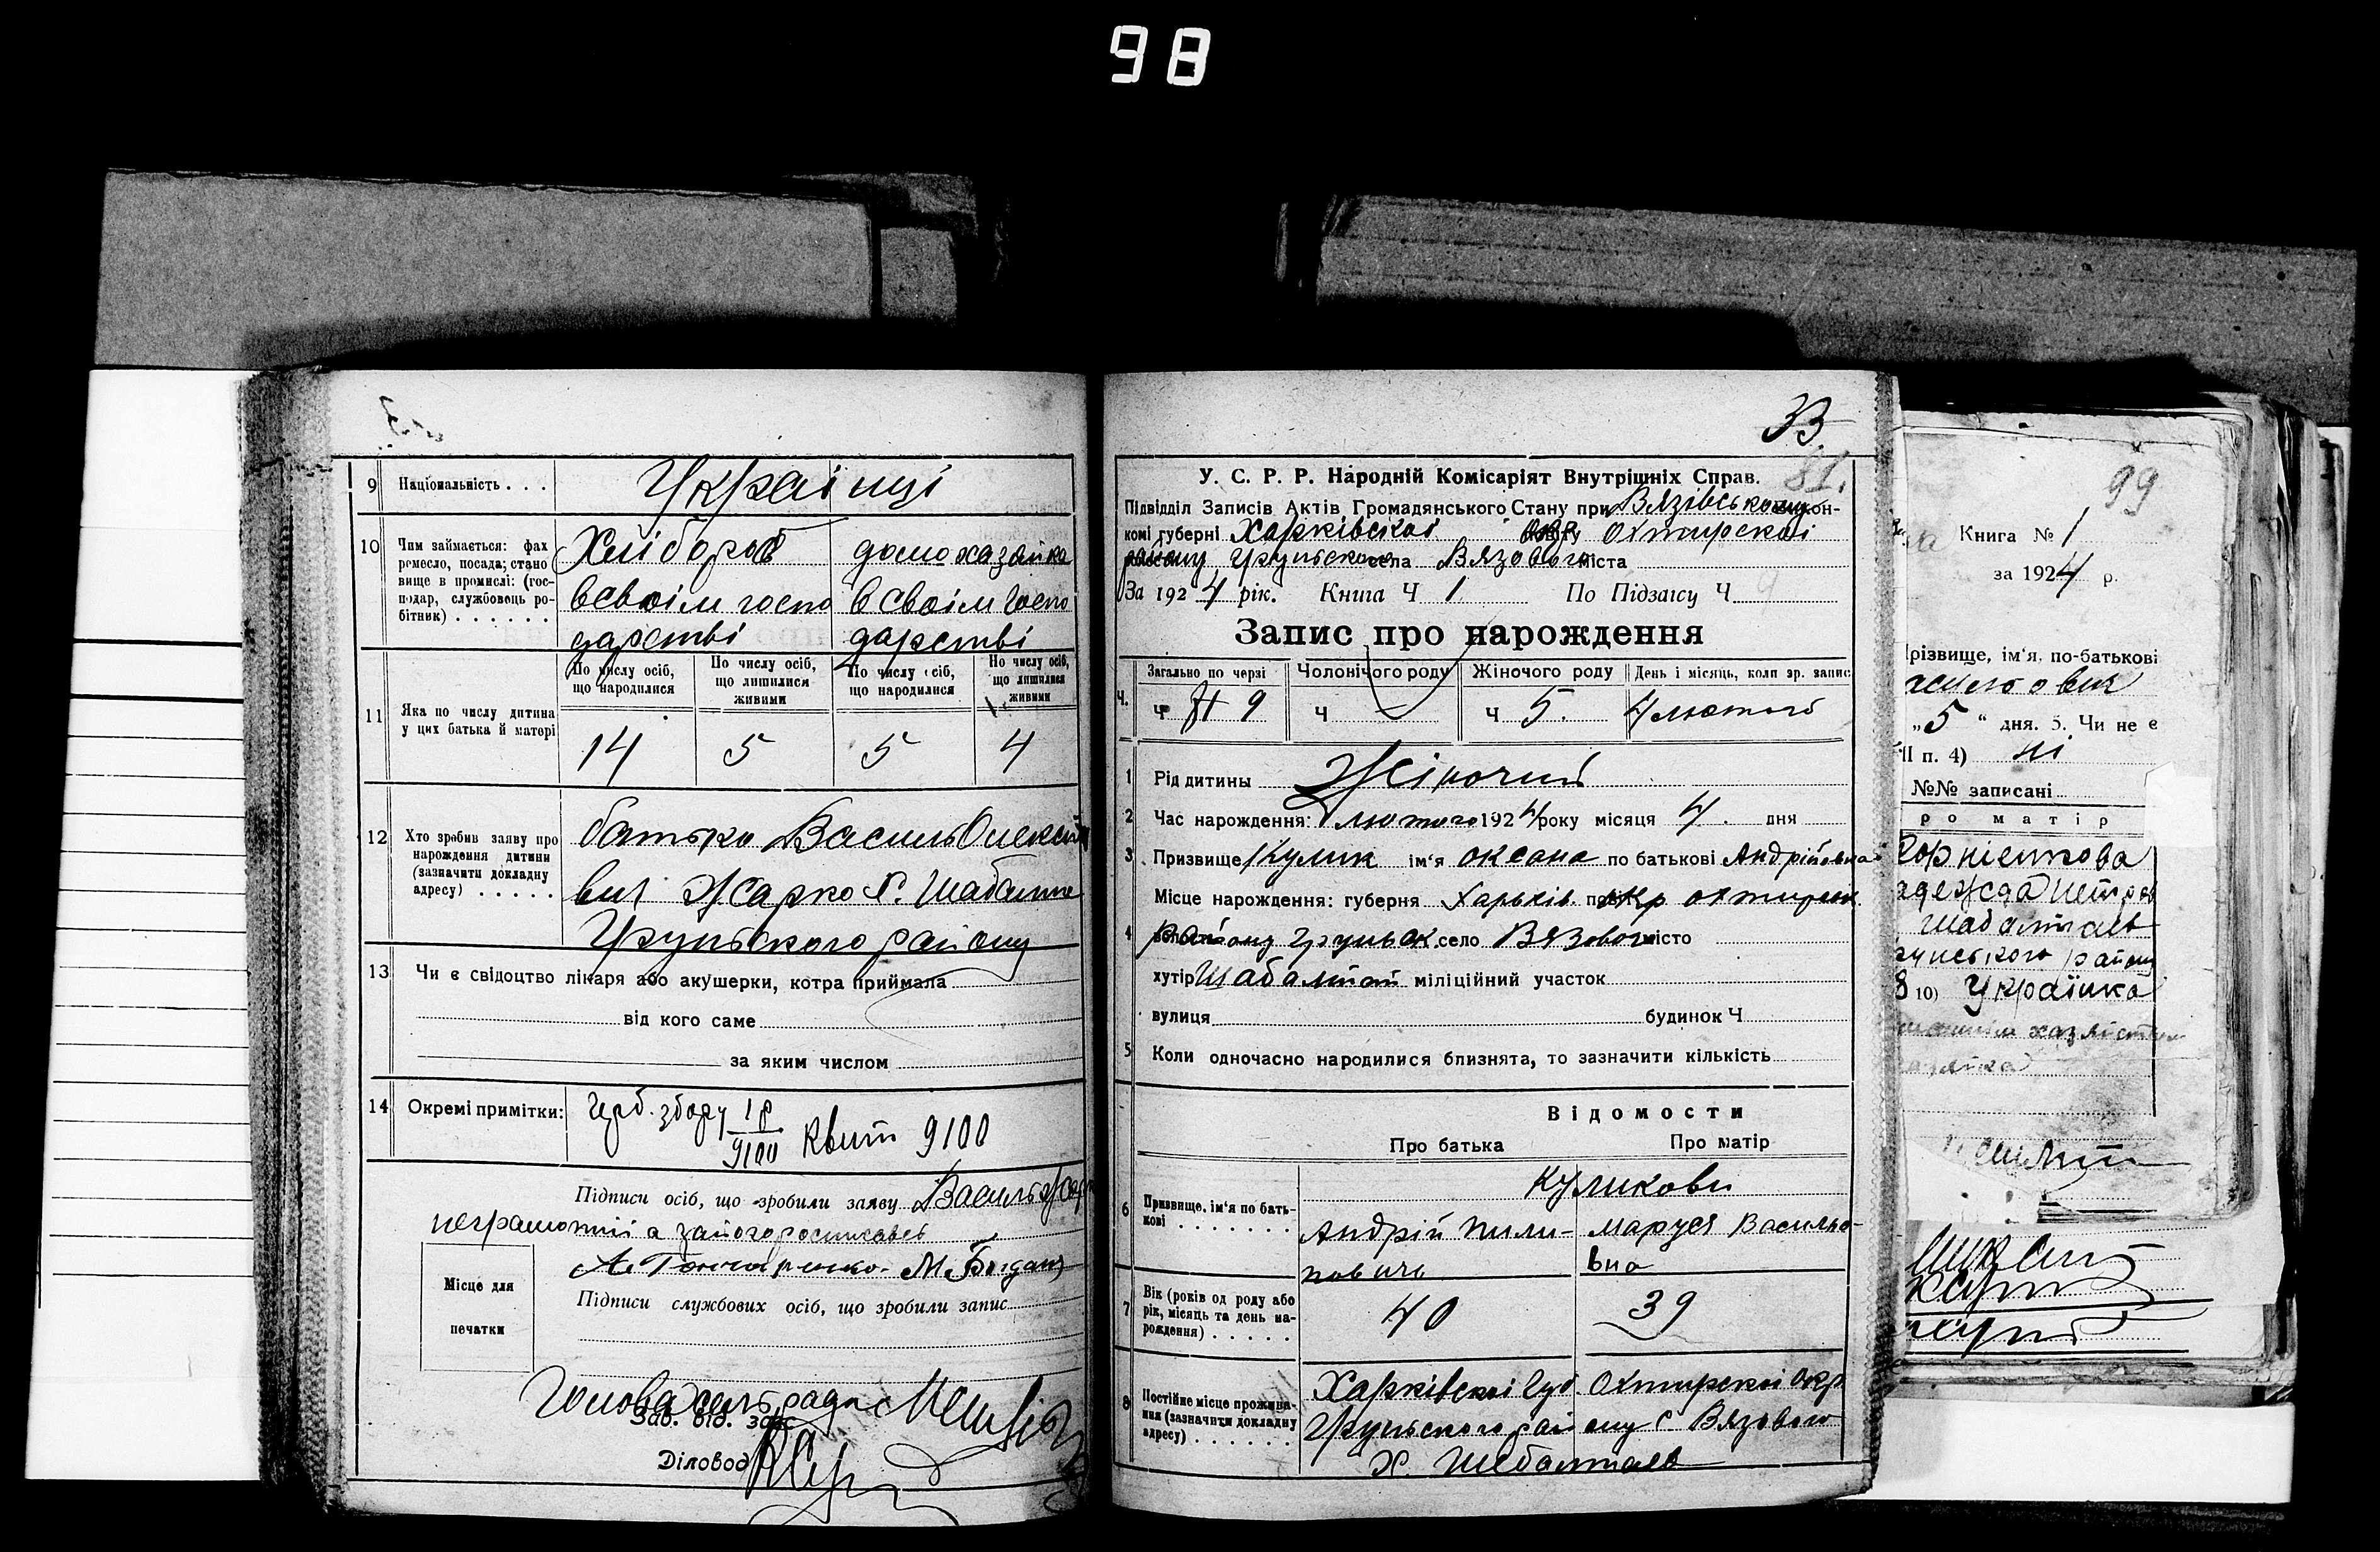 98
9 Національность . . . Украінці
10 Чим займається: фах ремесло, посада; становище в промислі: (господар, службовець робітник) . . . . . .
Хлібороб
домохазайка
в своім госпо
в своім госпо
дарстві
дарстві
11 Яка по числу дитина у цих батька й матері
По числу осіб, що народилися
По числу осіб, що лишилися живими
По числу осіб, що народилися
По числу осіб, що лишилися живими
14 5 5 4
12 Хто зробив заяву про нарождення дитини (зазначити докладну адресу) . . . . .
батько Василь Олексій
вич Жарко
Груньского району
13 Чи є свідоцтво лікаря або акушерки, котра приймала
від кого саме
за яким числом
14 Окремі примітки: Герб. збору 1 р 9100 Квит 9100
Підписи осіб, що зробили заяву Василь Жар
неграмотний а за його росписавсь
А. Гончаренко. М. Богдан
Місце для печатки
Підписи службових осіб, що зробили запис
Голова сельради
Зав. від. запс
Діловод
33.
81.
У. С. Р. Р. Народній Комісаріят Внутрішніх Справ.
Підвідділ Записів Актів Громадянського Стану при Вязівському виконкомі губерні Харківскоі окр Охтирскоі
району Груньского села Вязового міста
За 1924 рік. Книга Ч 1 По Підзагсу Ч 9
Запис про нарождення
Загально по черзі Чолонічого роду Жіночого роду День і місяць, коли зр. запис
Ч. Ч 9 Ч Ч 5. 4 лютого
1 Рід дитини Жіночий
2 Час нарождення: лютого 1924 року місяця 4. дня
3 Призвище Кулик ім'я Оксана по батькові Андрійовна
Місце нарождення: губерня Харьків. окр Охтирск.
4 району Груньск. село Вязового місто
хутір Шабалтай міліційний участок
вулиця будинок Ч
5 Коли одночасно народилися близнята, то зазначити кількість
Відомости
Про батька Про матір
Куликови
6 Призвище, ім'я по батькові . . . . . . . Андрій Пили- Маруся Василь-
повичь вна
7 Вік (років од роду або рік, місяць та день народження) . . . . . 40 39
8 Постійне місце проживання (зазначити докладну адресу) . . . . . .
Харківскоі Губ. Охтирскоі Окр
Груньского району с Вязового
Х. Шабалтаєв
99
Книга № 1
за 1924 р.
різвище, ім'я, по-батькові
„5“ дня. 5. Чи не є
ІІ п. 4) ні
№№ записані
ро матір
Корніенкова
Шабалтаєв
району
8 10) Українка